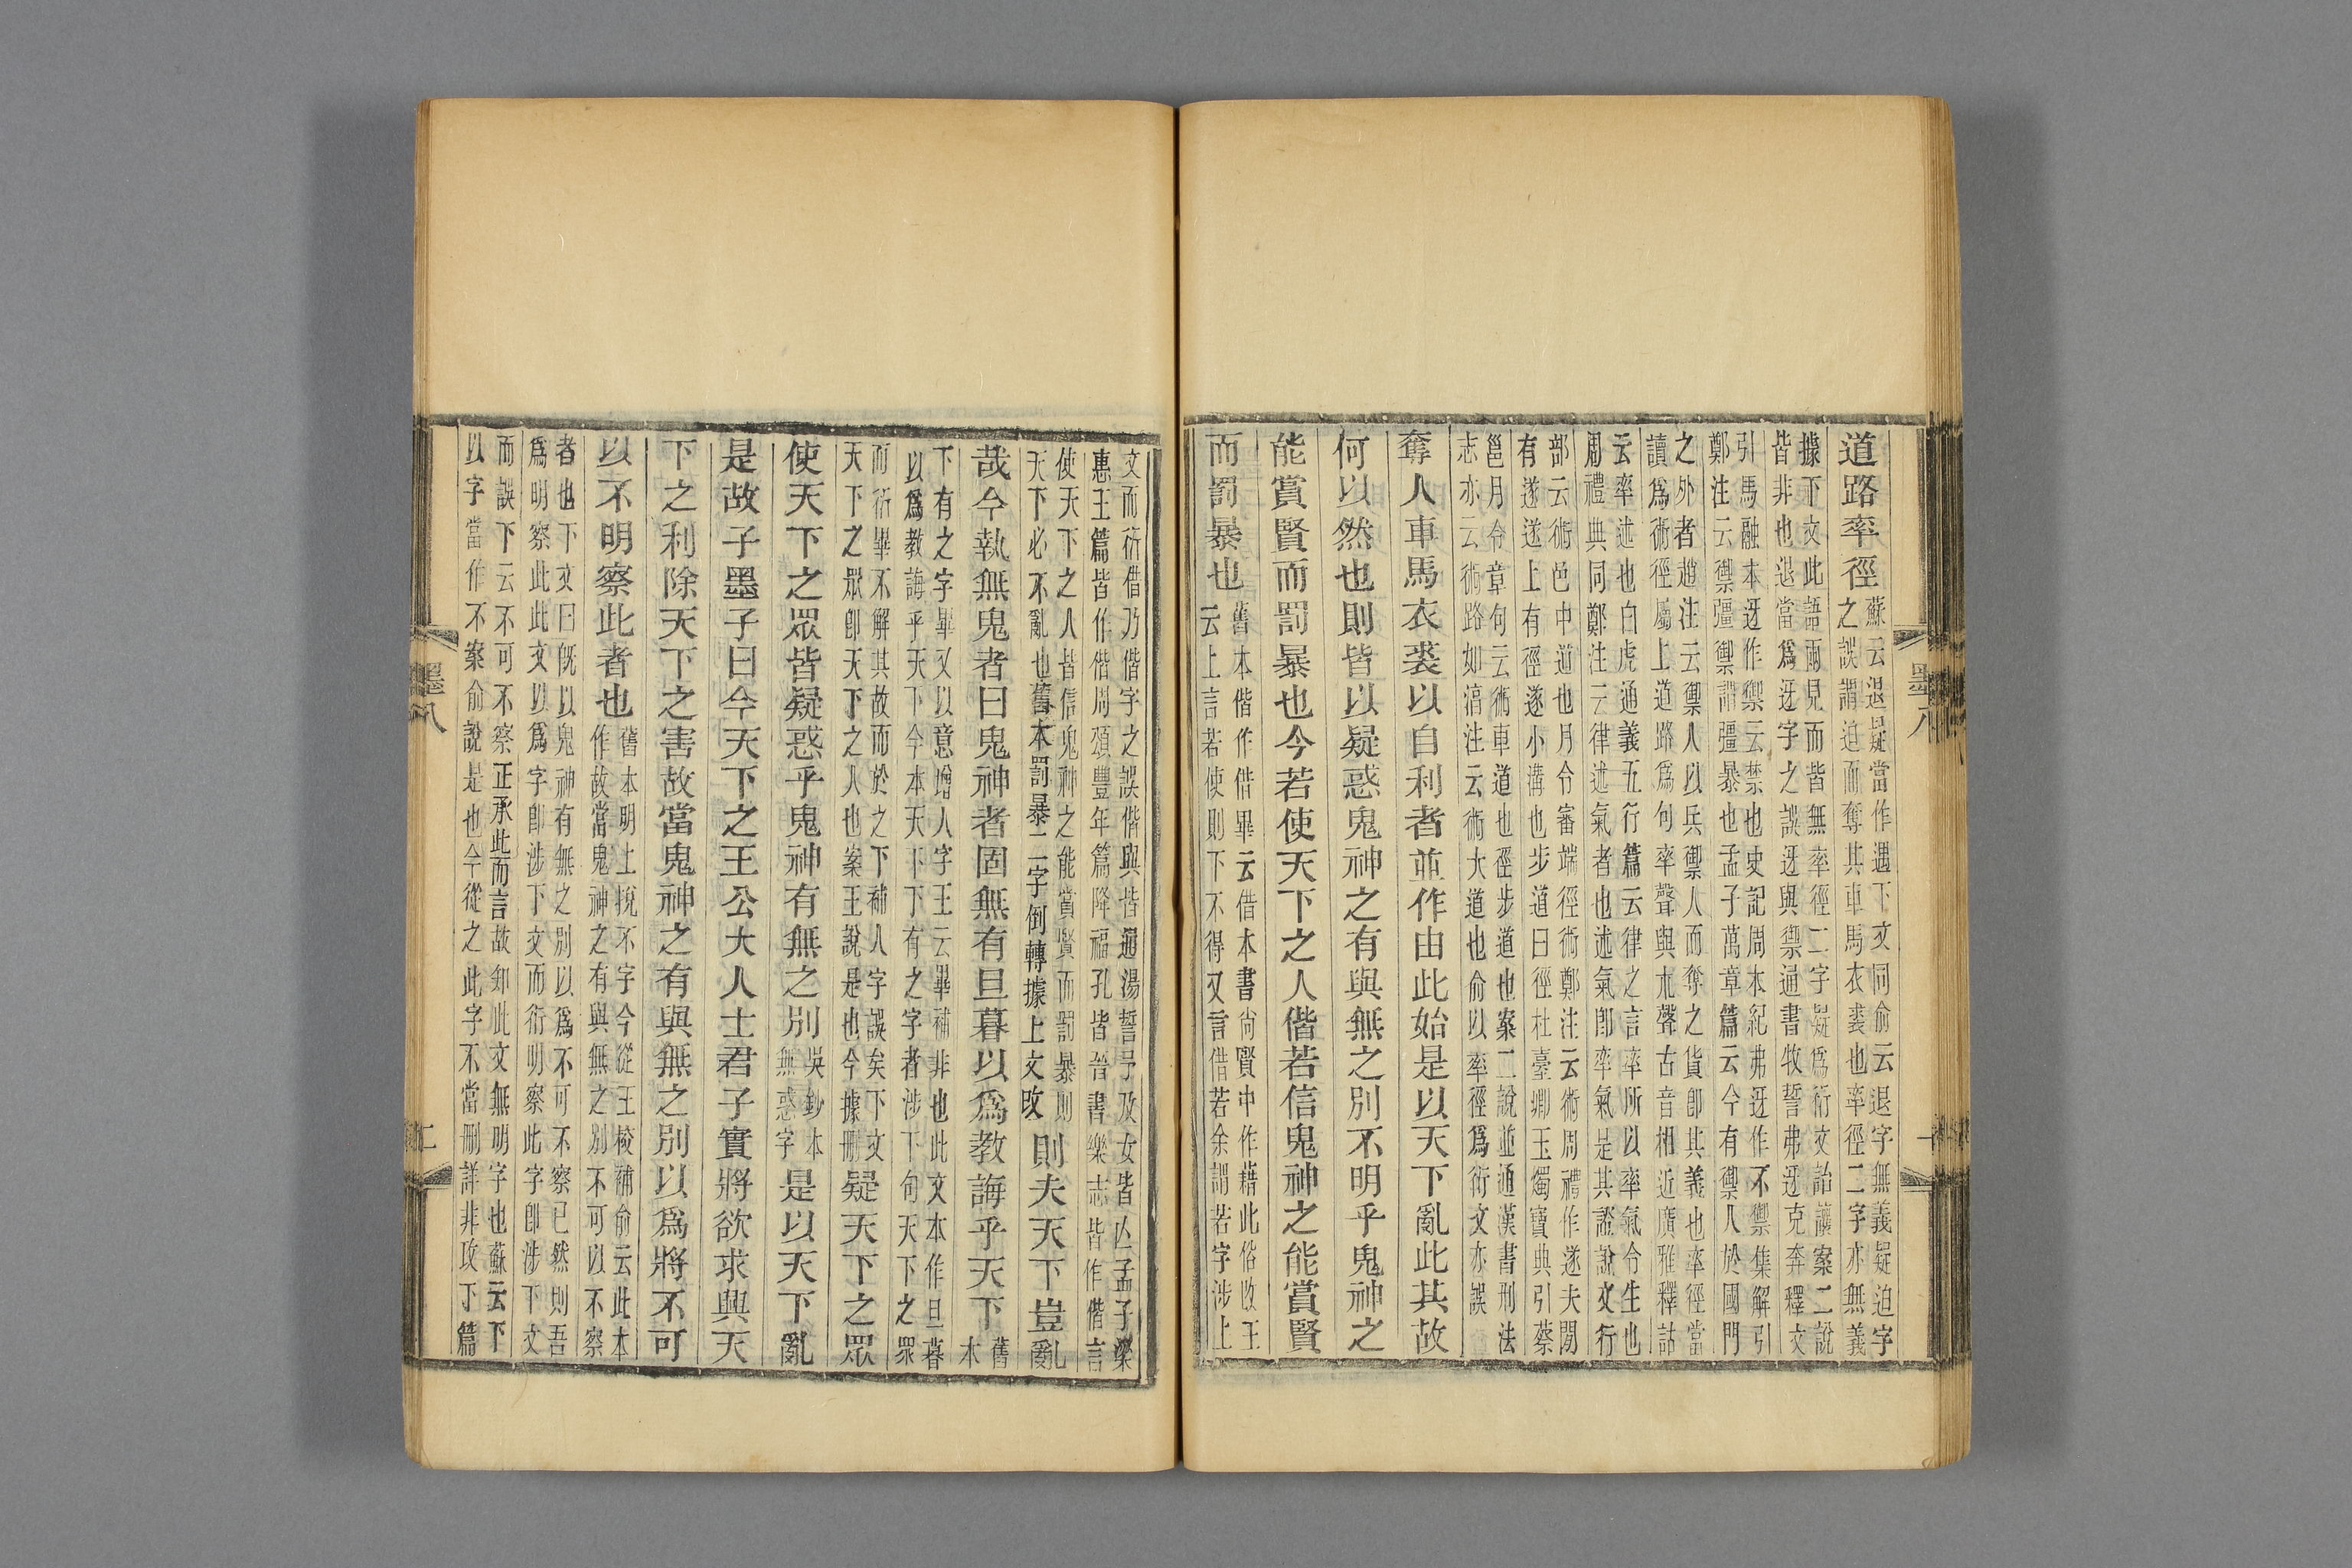 道路率徑蘇云退疑當作遇下文同俞云退字無義疑迫字
之誤謂迫而奪其車馬衣裘也率徑二字亦無義
據下文此語兩見而皆無率徑二字疑爲衍文詒讓案二說
皆非也退當爲迓字之誤迓與禦通書牧誓弗迓克奔釋文
引馬融本迓作禦云禁也史記周本紀弗迓作不禦集解引
鄭注云禦彊禦謂彊暴也孟子萬章篇云今有禦人於國門
之外者趙注云禦人以兵禦人而奪之貨卽其義也率徑當
讀爲術徑屬上道路爲句率聲與朮聲古音相近廣雅釋詁
云率述也白虎通義五行篇云律之言率所以率氣令生也
周禮典同鄭注云律述氣者也述氣卽率氣是其證說文行
部云術邑中道也月令審端徑術鄭注云術周禮作遂夫閒
有遂遂上有徑遂小溝也步道曰徑杜臺卿玉燭寶典引蔡
邕月令章句云術車道也徑步道也案二說並通漢書刑法
志亦云術路如淳注云術大道也俞以率徑爲衍文亦誤
奪人車馬衣裘以自利者並作由此始是以天下亂此其故
何以然也則皆以疑惑鬼神之有與無之別不明乎鬼神之
能賞賢而罰暴也今若使天下之人偕若信鬼神之能賞賢
而罰暴也舊本偕作借畢云借本書尚賢中作藉此俗改王
云上言若使則下不得又言借若余謂若字涉上
墨八
一
文而衍借乃偕字之誤偕與皆通湯誓予及女皆亾孟子梁
惠王篇皆作偕周頌豐年篇降福孔皆晉書樂志皆作偕言
使天下之人皆信鬼神之能賞賢而罰暴則
天下必不亂也舊本罰暴二字倒轉據上文改則夫天下豈亂
哉今執無鬼者曰鬼神者固無有旦暮以爲教誨乎天下舊
本
下有之字畢又以意增人字王云畢補非也此文本作旦暮
以爲教誨乎天下今本天下下有之字者涉下句天下之眾
而衍畢不解其故而於之下補人字誤矣下文
天下之眾卽天下之人也案王說是也今據刪疑天下之眾
使天下之眾皆疑惑乎鬼神有無之別吳鈔本
無惑字是以天下亂
是故子墨子曰今天下之王公大人士君子實將欲求興天
下之利除天下之害故當鬼神之有與無之別以爲將不可
以不明察此者也舊本明上挩不字今從王校補俞云此本
作故當鬼神之有與無之別不可以不察
者也下文曰旣以鬼神有無之別以爲不可不察已然則吾
爲明察此此文以爲字卽涉下文而衍明察此字卽涉下文
而誤下云不可不察正承此而言故知此文無明字也蘇云下
以字當作不案俞說是也今從之此字不當刪詳非攻下篇
墨八
二